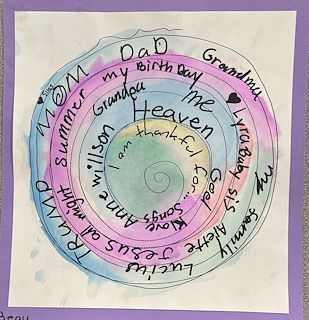 I am thankful for...
Songs
Love
God
Heaven
Anne willson
Grandpa
my BirthDay
Summer
Jesus
Alette
Lyra baby sis
Lucius
TRUMP
MOM
DaD
Grandma
my family